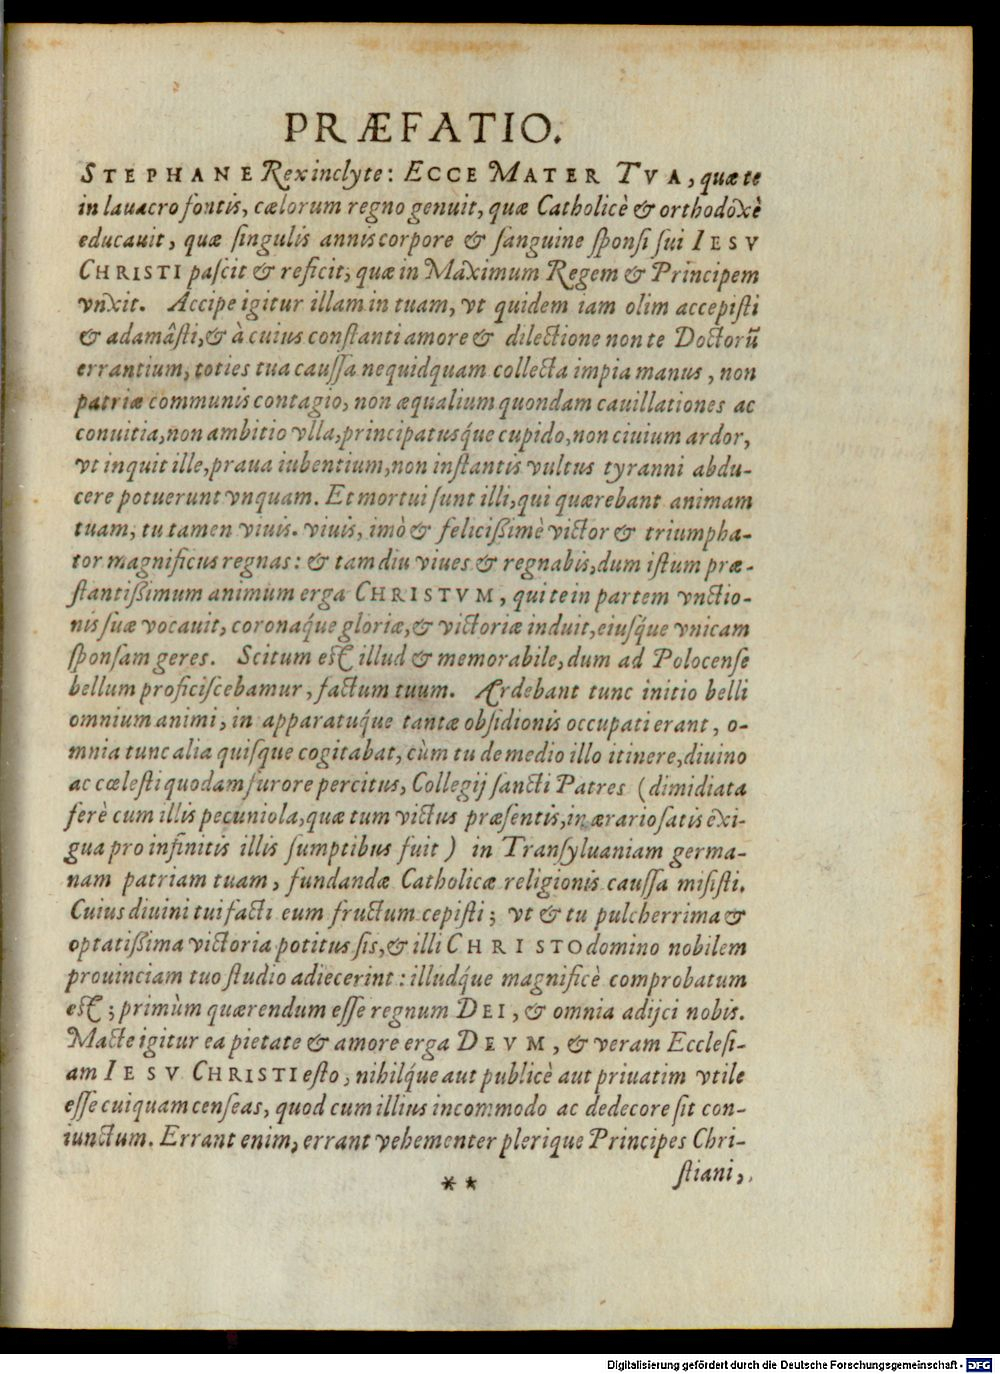 PRÆFATIO.
STEPHANE Rex inclyte: ECCE MATER TVA, quæ te
in lauacro fontis, cælorum regno genuit, quæ Catholicè & orthodoxè
educauit, quæ singulis annis corpore & sanguine sponsi sui IESV
CHRISTI pascit & reficit; quæ in Maximum Regem & Principem
vnxit. Accipe igitur illam in tuam, vt quidem iam olim accepisti
& adamâsti, & à cuius constanti amore & dilectione non te Doctorũ
errantium, toties tua caussa nequidquam collecta impia manus, non
patriæ communis contagio, non æqualium quondam cauillationes ac
conuitia, non ambitio vlla, principatusq́ue cupido, non ciuium ardor,
vt inquit ille, praua iubentium, non instantis vultus tyranni abdu-
cere potuerunt vnquam. Et mortui sunt illi, qui quærebant animam
tuam, tu tamen viuis. viuis, imò & felicißimè victor & triumpha-
tor magnificus regnas: & tam diu viues & regnabis, dum istum præ-
stantißimum animum erga CHRISTVM, qui te in partem vnctio-
nis suæ vocauit, coronaq́ue gloriæ, & victoriæ induit, eiusq́ue vnicam
sponsam geres. Scitum est illud & memorabile, dum ad Polocense
bellum proficiscebamur, factum tuum. Ardebant tunc initio belli
omnium animi, in apparatuq́ue tantæ obsidionis occupati erant, o-
mnia tunc alia quisque cogitabat, cùm tu de medio illo itinere, diuino
ac cœlesti quodam furore percitus, Collegij sancti Patres (dimidiata
ferè cum illis pecuniola, quæ tum victus præsentis, in ærario satis exi-
gua pro infinitis illis sumptibus fuit) in Transyluaniam germa-
nam patriam tuam, fundandæ Catholicæ religionis caussa misisti.
Cuius diuini tui facti eum fructum cepisti; vt & tu pulcherrima &
optatißima victoria potitus sis, & illi CHRISTO domino nobilem
prouinciam tuo studio adiecerint: illudq́ue magnificè comprobatum
est; primùm quærendum esse regnum DEI, & omnia adijci nobis.
Macte igitur ea pietate & amore erga DEVM, & veram Ecclesi-
am IESV CHRISTI esto, nihilq́ue aut publicè aut priuatim vtile
esse cuiquam censeas, quod cum illius incommodo ac dedecore sit con-
iunctum. Errant enim, errant vehementer plerique Principes Chri-
** stiani,
Digitalisierung gefördert durch die Deutsche Forschungsgemeinschaft - DFG